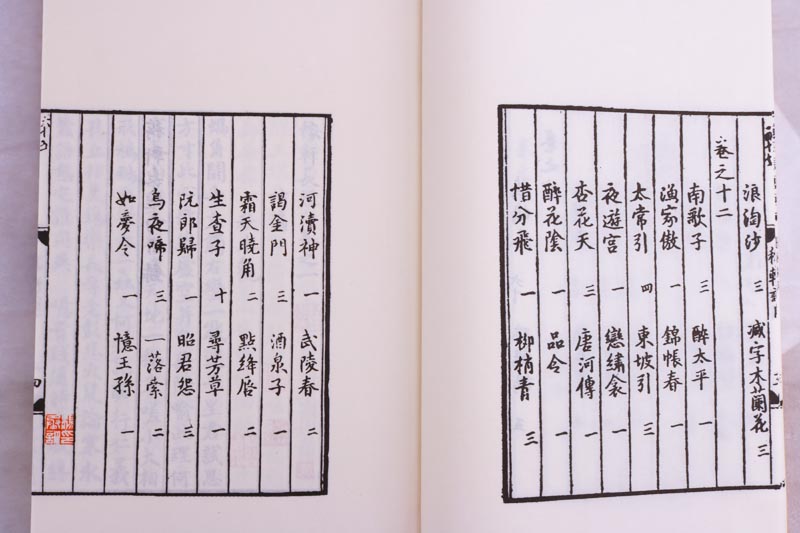 浪淘沙 三 減字木蘭花 三
卷之十二
南歌子 三 醉太平 一
漁家傲 一 錦帳春 一
太常引 四 東坡引 三
夜遊宮 一 戀繡衾 一
杏花天 三 唐河傳 一
醉花陰 一 品令 一
惜分飛 一 柳梢青 三
河瀆神 一 武陵春 二
謁金門 三 酒泉子 一
霜天曉角 二 點絳唇 二
生查子 十 尋芳草 一
阮郎歸 一 昭君怨 三
烏夜啼 三 一落索 二
如夢令 一 憶王孫 一
四